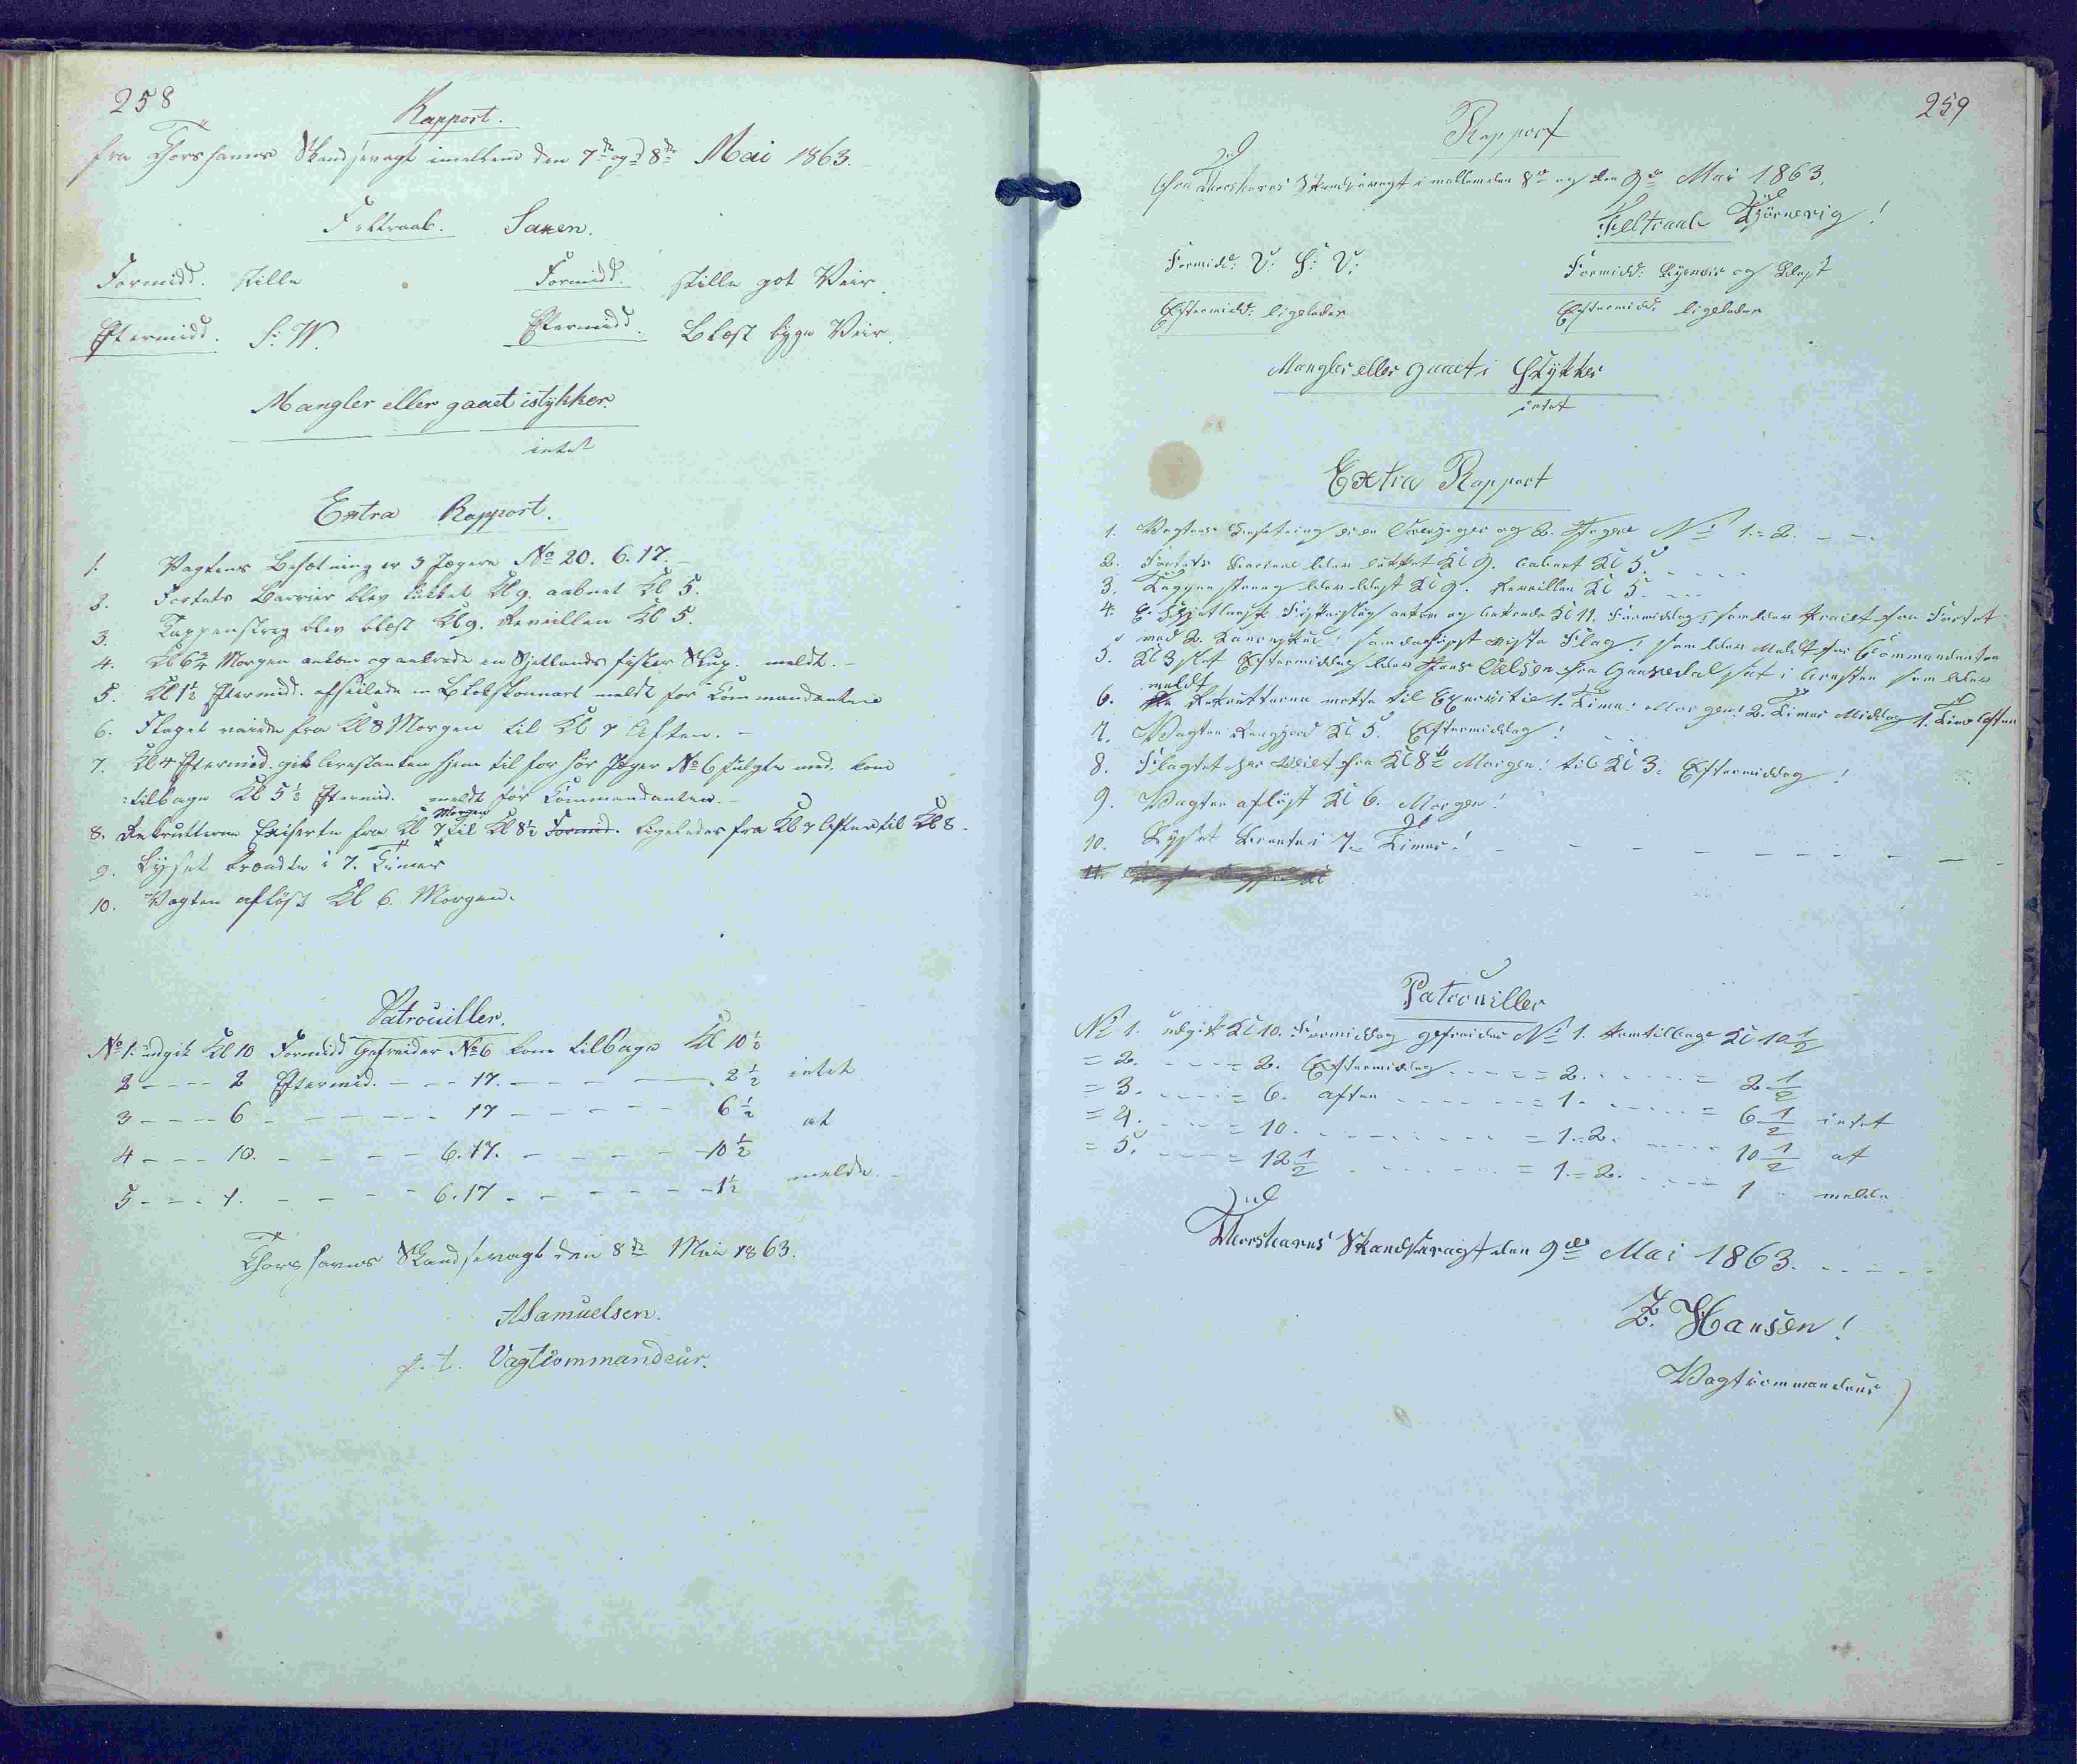 258
Rapport.
fra Thorshavns Skandsevagt imellem den 7de og 8de Mai 1863.
Feltraab. Saxen.
Formidd. stille Formidd. stille got Veir.
Eftermidd. S. W. Eftermidd. Blæst bÿge Veir.
Mangler eller gaaet istÿkker.
intet
Extra Rapport.
1. Vagtens Besætning er 3 Jægere No 20. 6. 17. –
2. Fortets Barrier blev lukket Kl 9. aabnet Kl 5.
3. Tappenstreg blev blæst Kl 9. Reveillen Kl 5.
4. Kl 6 3/4 Morgen ankom og ankrede en Sjetlands fisker Slup. meldt. –
5. Kl 1 1/2 Eftermidd. afseilede en Skonnert meldt for Kommandanten
6. Flaget vaiede fra Kl 8 Morgen til Kl 7 Aften. –
7. Kl 4 Eftermid. gik Arrestanten hjem til forhör Jæger No 6 fulgte med. kom
tilbage Kl 5 1/2 Eftermid. meldt for Kommandanten. –
8. Rekrutterne Exiserte fra Kl 7 Morgen til Kl 8 1/2 Formid. ligeledes fra Kl 7 Aften til Kl 8.
9. Lÿset brændte i 7. Timer
10. Vagten aflöst Kl 6. Morgen.
Patrouiller.
No 1. udgik Kl 10 Formidd Gefreider No 6 kom tilbage Kl 10 1/2
2 - - - - 2 Eftermid. - - - 17. - - - - 2 1/2 intet
3 - - - - 6 - - - - - 17 - - - - - 6 1/2 at
4 - - - 10. - - - - 6. 17. - - - - - 10 1/2
5 - - - 1. - - - - 6. 17 - - - - - 1 1/2 melde. –
Thorshavns Skandsevagt den 8de Mai 1863.
ASamuelsen.
p. t. Vagtcommandeur.
259
Rapport
fra Thorshavns Skandsevagt imellem den 8de og den 9de Mai 1863.
Feltraab Tjörnevig!
Formidd: V: S: V: Formidd: Bÿeveir og Blæst
Eftermidd: ligeledes Eftermidd: ligeledes
Mangler eller gaaet i Stÿkker
intet
Extra Rapport
1. Vagtens Besetning er en og 2. Jegere No 1. = 2. – –
2. Fortets Barriere blev lukket Kl 9. aabnet Kl 5. - - - -
3. Tappenstreg blev blæst Kl 9. Reveillen Kl 5. - - -
4. E Sjetlandsk Fiskerslup ankom og ankrede Kl 11. Formiddag; som blev fra Fortet
med 2. som viste Flag! som blev Meldt for Commandanten
5. Kl 3 slet Eftermiddag blev Hans Olelsen fra Gaasedal sat i Aresten som blev
meldt
6. Rekrutterne motte til Exersitie 1. Time: Morgen! 2. Timer Middag 1. Time Aften
7. Vagten Rengjord Kl 5. Eftermiddag!
8. Flagtet har Veiet fra Kl 8te Morgen! til Kl 3: Eftermiddag!
9. Vagten aflöst Kl 6. Morgen!
10. Lÿset Brente i 7. Timer! – – – – – –
11.
Patrouiller
No 1. udgik Kl 10. Formiddag gefreider No 1. kom tilbage Kl 10 1/2
= 2. - - - = 2. Eftermiddag - - - = 2. - - - = 2 1/2
= 3. - - - = 6. aften - - - = 1. - - - = 6 1/2 intet
= 4. - - - = 10. - - - - = 1. = 2. - - - 10 1/2 at
= 5. - - - = 12 1/2 - - - - = 1. = 2. - - - 1 - melde
Thorshavns Skandsevagt den 9de Mai 1863. - - - -
Z. Hansen!
Vagtcommandeur